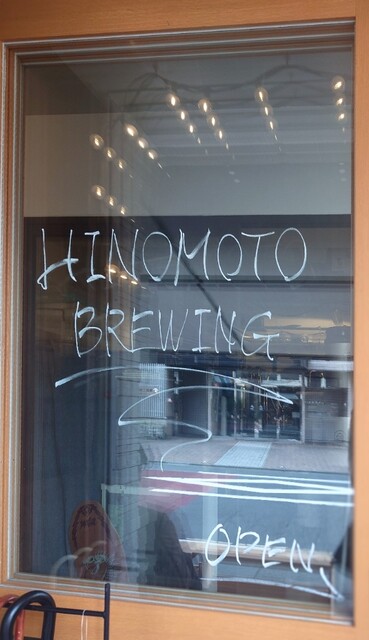 HINOMOTO
BREWING
OPEN